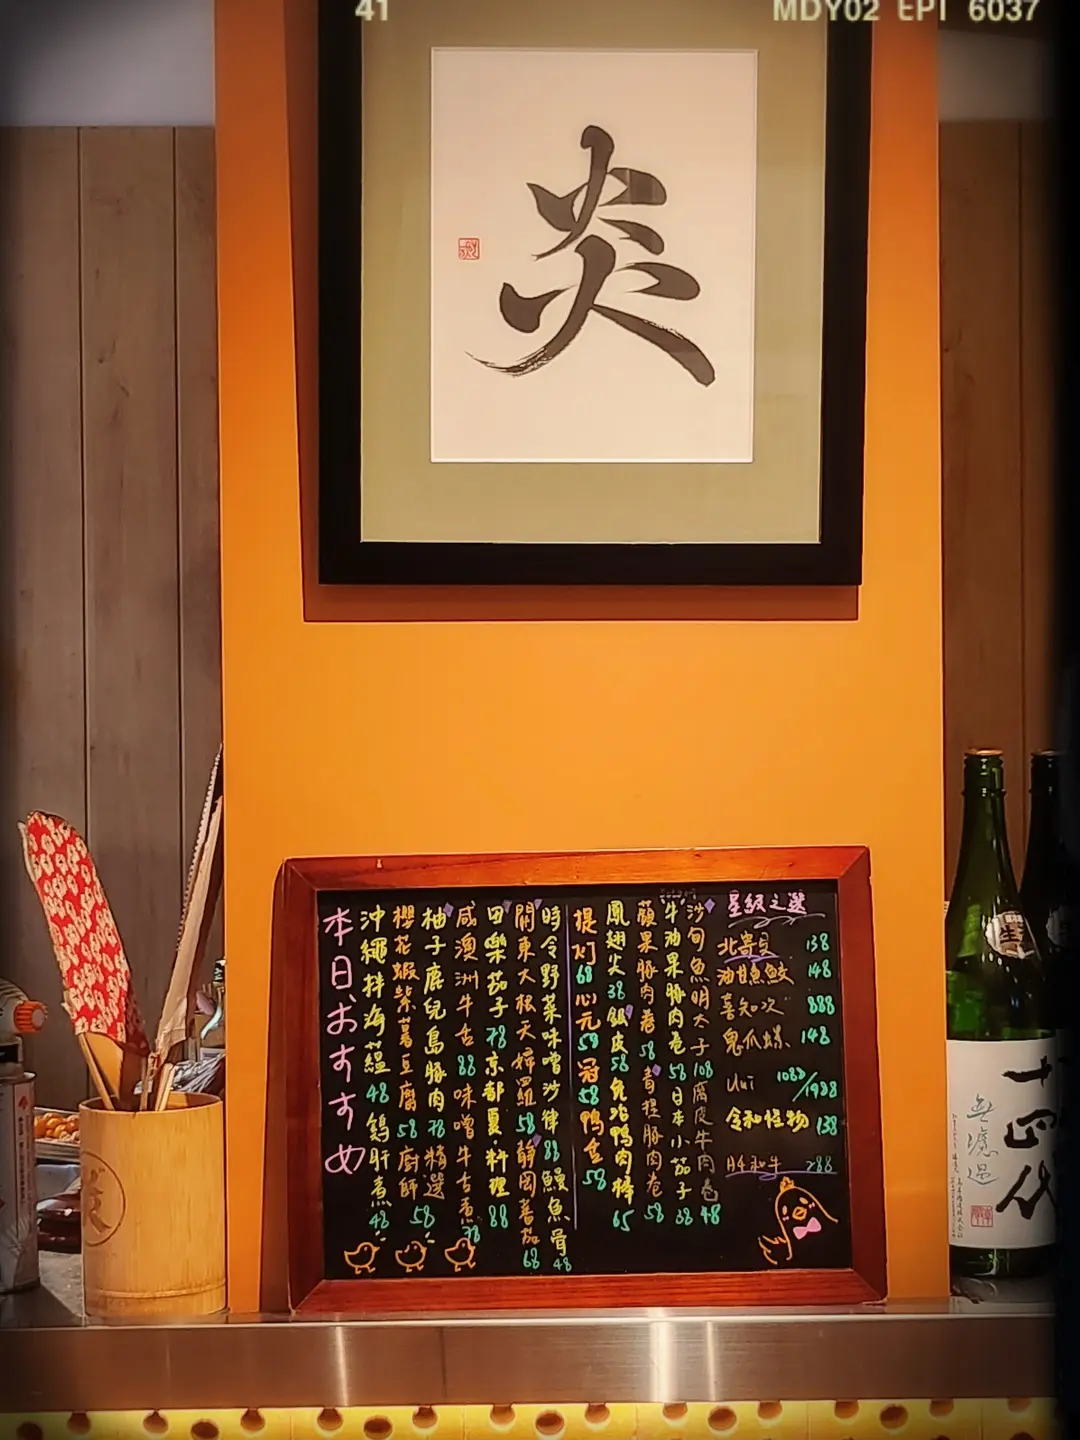 41
MDY02 EPT 6037
炎
本日おすすめ
沖繩拌海蘊 48 鵝肝煮 48
櫻花蝦紫薯豆腐 58 廚師
柚子鹿兒島豚肉 78 精選 58
咸澳洲牛舌 88 味噌牛舌煮 78
田樂茄子 78 京都夏料理 88
關東大根天婦羅 58 靜岡蕃茄 68
時令野菜味噌沙律 88 鰻魚骨 48
提灯 68 心元 58 冠 58 鴨舌 58
鳳翅尖 38 銀皮 58 免治鴨肉棒 65
蘋果豚肉卷 58 青提豚肉卷 58
牛油果豚肉卷 58 日本小茄子 38
沙旬魚明太子 108 腐皮牛肉卷 48
星級之選
北寄貝 138
油甘魚鮫 148
喜知次 888
鬼爪螺 148
Uni 1088/1988
令和怪物 138
和牛 288
十四代
無濾過
炎